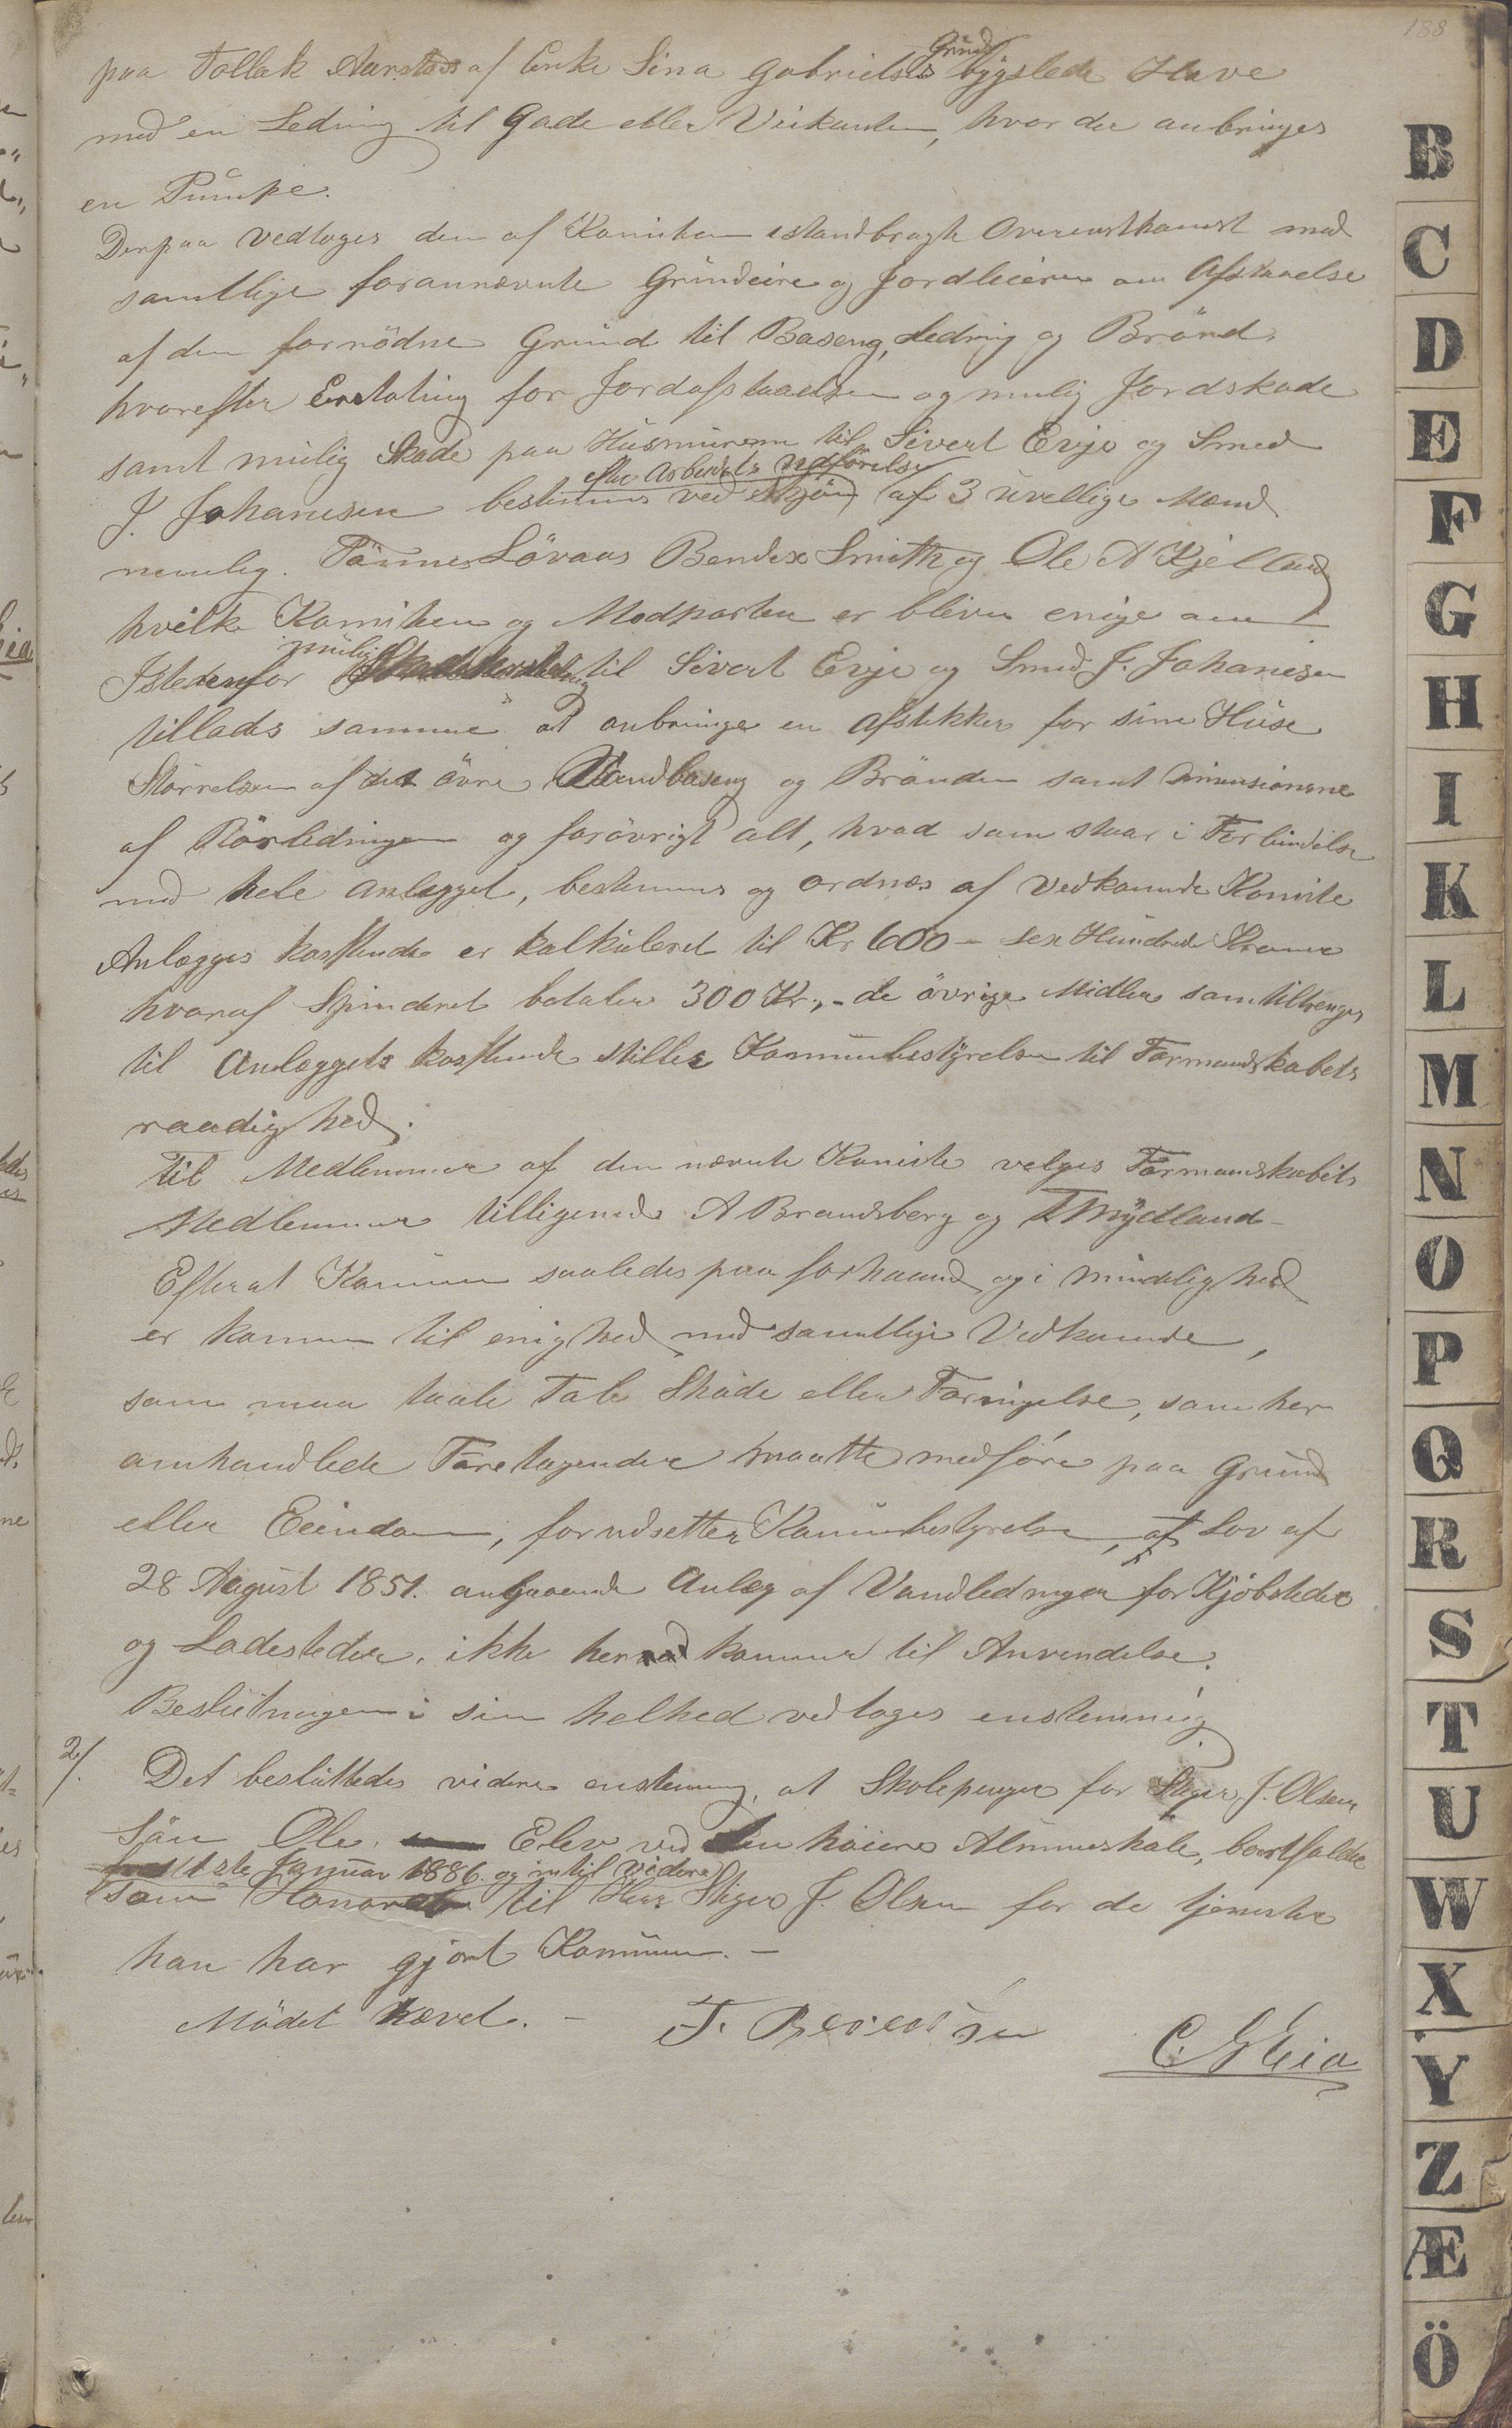 188
paa Tollak Aarstads af Enke Sina Gabriels's Grund bygslede Have
med en Ledning til Gade eller Veikanten, hvor der anbringes
en Pumpe.
Derpaa vedtoges den af Komiteen istandbragte Overenskomst med
samtlige forannævnte Grundeiere og Jordleiere om Afstaaelse
af den fornödne Grund til Baseng, Ledning og Brönd,
hvorefter Erstatning for Jordafstaaelsen og mulig Jordskade
samt mulig Skade paa Husmurene til Sivert Evje og Smed
efter Arbeidets Udförelse
J. Johanesen bestemmes ved Skjön af 3 uvellige Mænd
nemlig. Tönnes Lövaas Bendix Smith og Ole A Kjelland
hvilke Komiteen og Modparten er bleven enige om
Istedenfor mulig Skadeserstatning til Sivert Evje og Smed J. Johanesen
tillades samme at anbringe en afstikker for sine Huse
Störrelsen af det övre Vandbaseng og Brönden samt Dimensionene
af Rörledningen og forövrigt alt, hvad som staar i Forbindelse
med hele anlægget, bestemmes og ordnes af vedkommende Komite
Anlægges kostende er kalkuleret til Kr 600 - sex Hundrede Kroner
hvoraf Spinderiet betaler 300 Kr,- de övrige Midler som tiltrenges
til Anlæggets kostende stilles Komunebestyrelsen til Formandskabets
raadighed.
Til Medlemmer af den nævnte Komite velges Formanskabets
Medlemmer tilligemed A Brandsberg og T Mydland -
Efterat Komunen saaledes paa forhaand og i mindelighed
er kommen til enighed med samtlige Vedkommende,
som maa taale Tab Skade eller Forringelse, som her
omhandlede Foretagender maatte medföre paa Grund
eller Eiendom, forudsetter Komunebestyrelsen, at Lov af
28 August 1851. angaaende Anlæg af Vandledninger for Kjöbsteder
og Ladesteder. ikke herved kommer til Anvendelse.
Beslutningen i sin helhed vedtoges enstemmig.
2/. Det besluttedes videre enstemmig, at Skolepenger for Stiger J. Olsens
Sön Ole. Elev ved den höiere Almueskole, bortfalder
fra 1ste Januar 1886. og intil videre
som Honorar til Herr Stiger J. Olsen for de tjenester
han har gjort Komunen. -
Mödet hævet. - T. Berentsen C. G Eia
B
C
D
E
F
G
H
I
K
L
M
N
O
P
Q
R
S
T
U
W
X
Y
Z
Æ
Ö